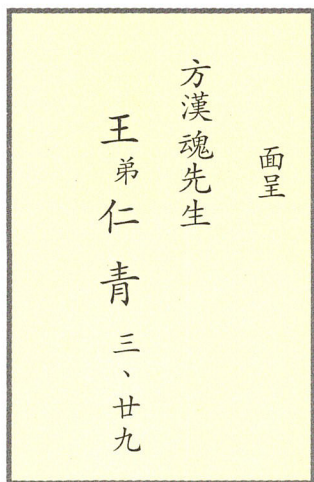 面呈
方漢魂先生
王弟仁青 三、廿九